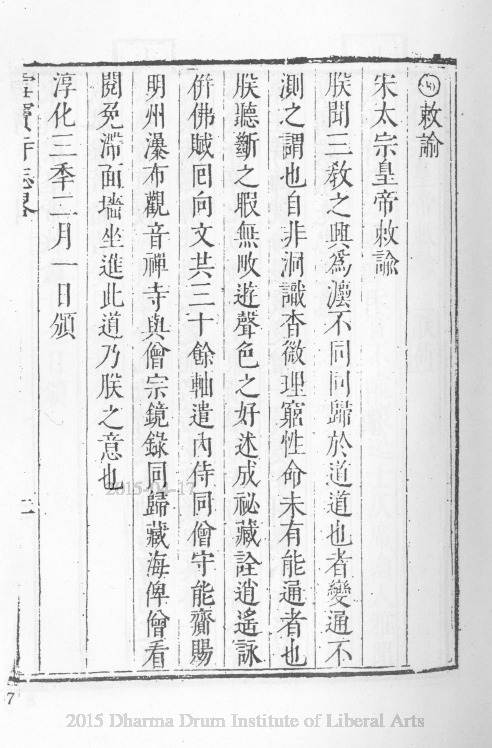 敕諭
宋太宗皇帝敕諭
朕聞三敎之興為灋不同同歸於道道也者變通不
測之謂也自非洞識杳微理窮性命未有能通者也
朕聽斷之暇無畋遊聲色之好述成祕藏詮逍遙詠
併佛賦回向文共三十餘軸遣內侍同僧守能齎賜
明州瀑布觀音禪寺與僧宗鏡錄同歸藏海俾僧看
閱免滯面墻坐進此道乃朕之意也
淳化三季二月一日頒
雪竇寺志畧
二
7
2015-04-17
2015 Dharma Drum Institute of Liberal Arts